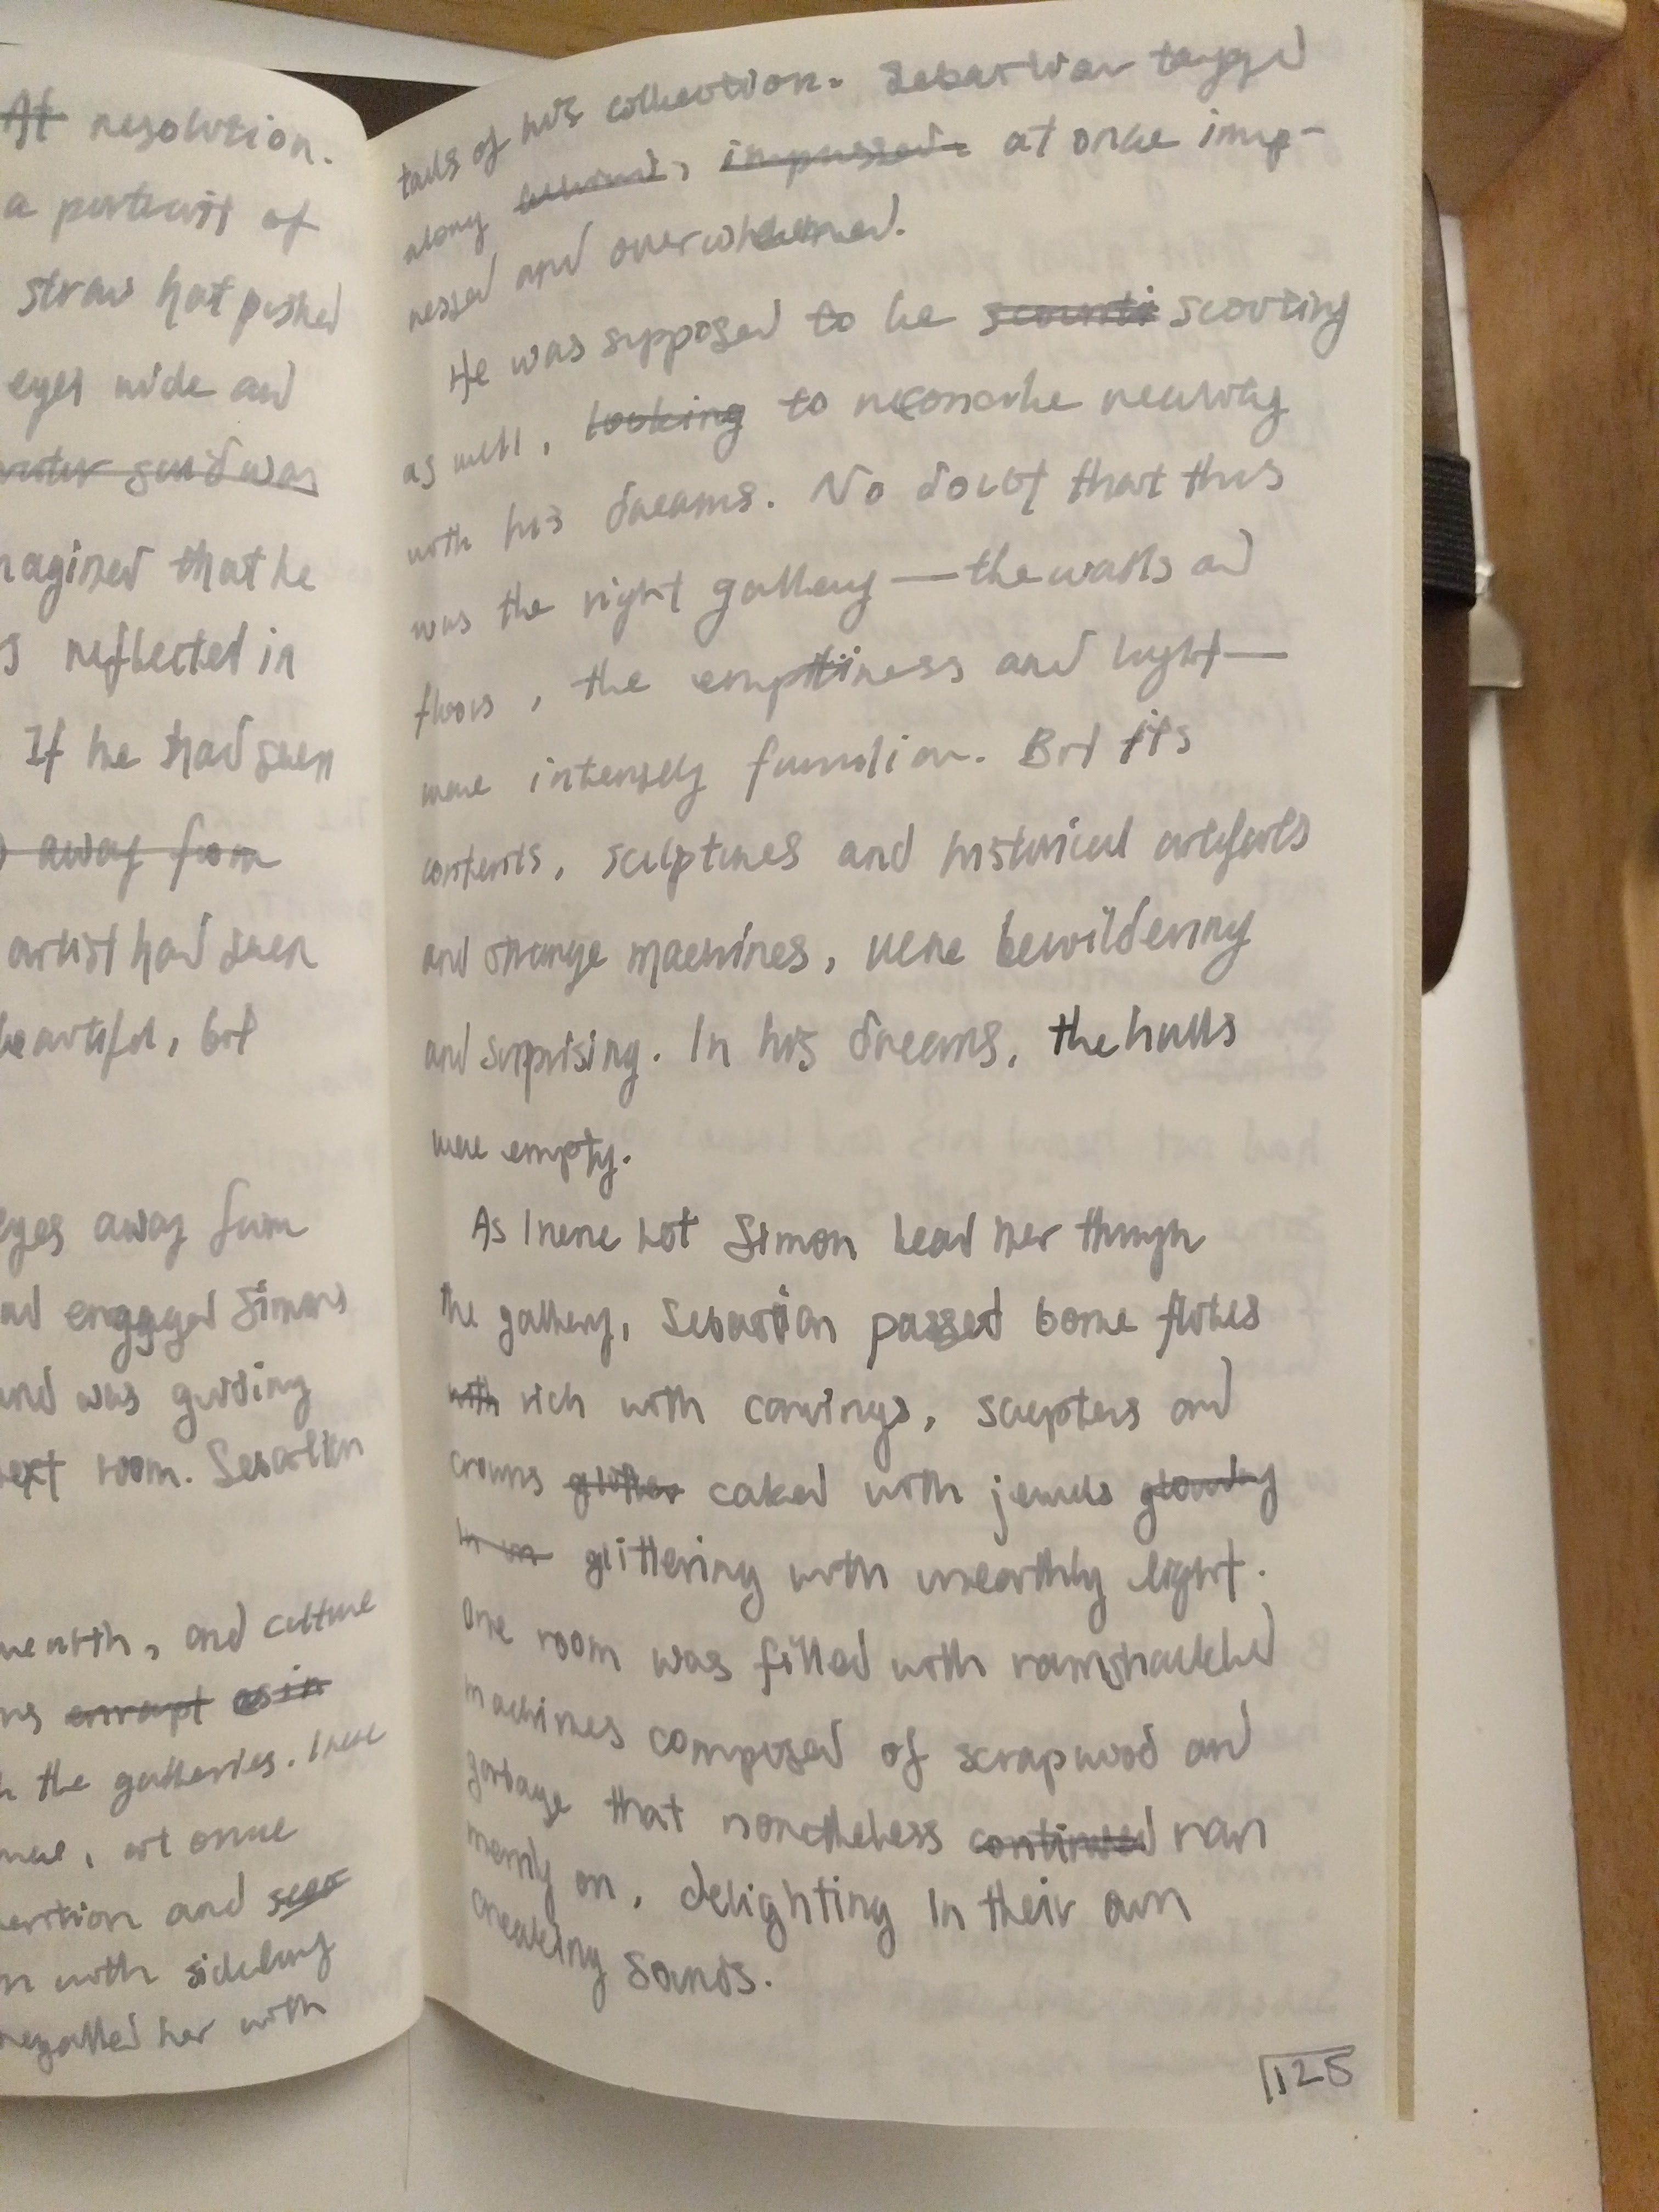 At resolution.
a portrait of
straw hat pushed
eyes wide and
was
magined that he
reflected in
If he had seen
away from
artist had seen
beautiful, but
eyes away from
engaged Simon's
and was guiding
next room. Sebastian
and culture
enrapt as in
the galleries. Irene
at once
and
with sidelong
regalled her with
tales of his collection. Sebastian tagged
along behind, impressed. at once imp-
ressed and overwhelmed.
He was supposed to be scouting
as well, looking to reconcile reality
with his dreams. No doubt that this
was the right gallery — the walls and
floors, the emptiness and light —
were intensely familiar. But its
contents, sculptures and historical artifacts
and strange machines, were bewildering
and surprising. In his dreams, the halls
were empty.
As Irene let Simon lead her through
the gallery, Sebastian passed bone flutes
with rich with carvings, scepters and
crowns glitter caked with jewels glowing
glittering with unearthly light.
One room was filled with ramshackled
machines composed of scrapwood and
garbage that nonetheless continued ran
merrily on, delighting in their own
creaking sounds.
125